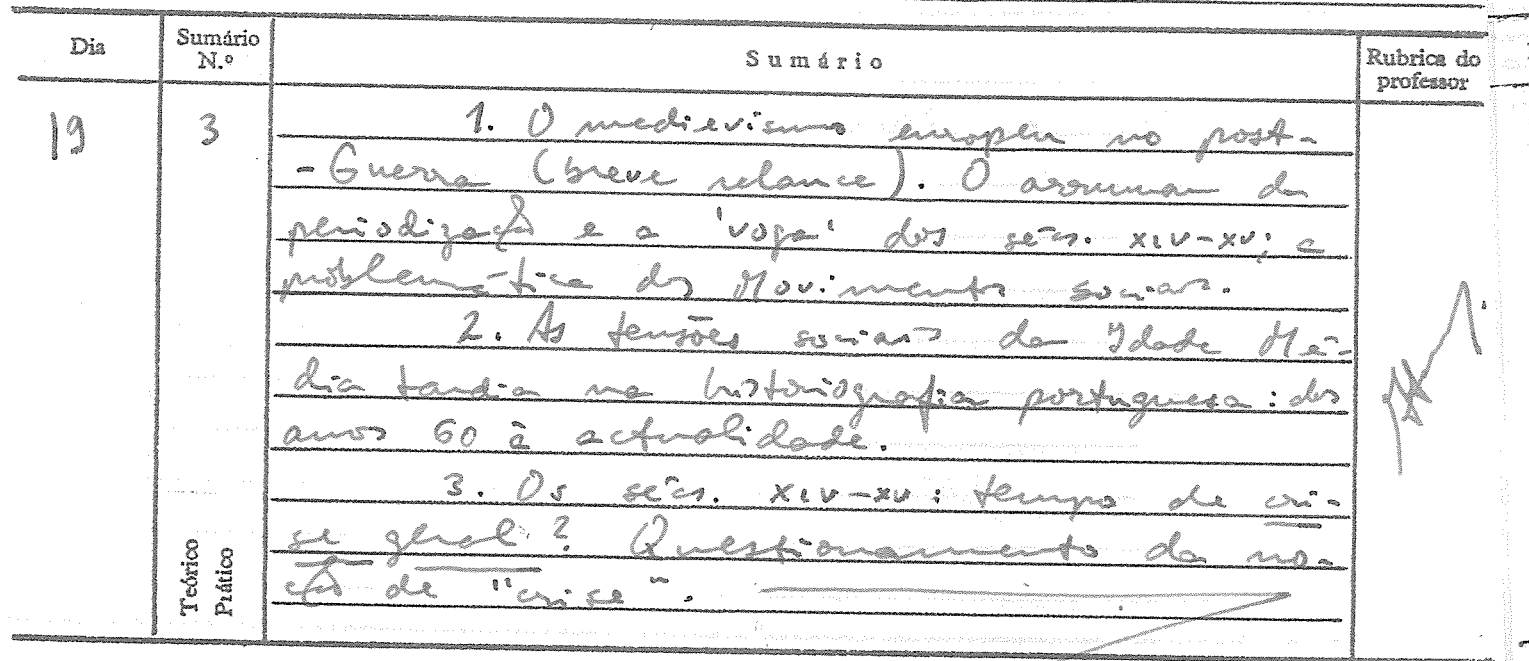 Dia Sumário N.º Sumário Rubrica do professor
19 3 1. O medievismo europeu no post-
-Guerra (breve relance). O arrumar da
periodização e a 'voga' dos sécs. XIV-XV; a
problemática dos Movimentos sociais.
2. As tensões sociais da Idade Mé-
dia tardia na historiografia portuguesa: dos
anos 60 à actualidade.
3. Os sécs. XIV-XV: tempo de cri-
se geral? Questionamento da no-
ção de "crise".
Teórico
Prático